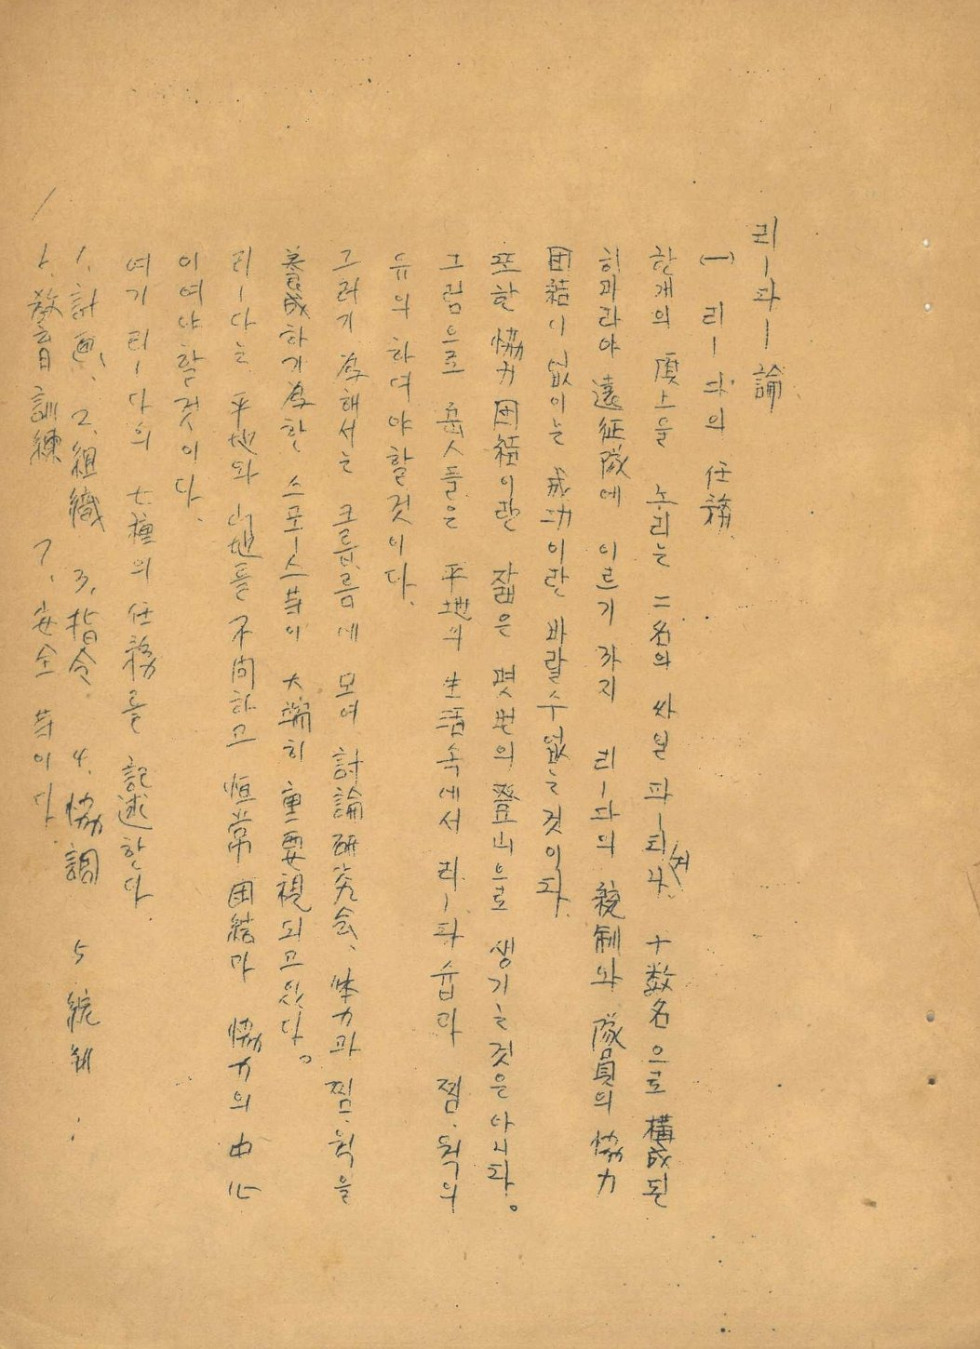 리ー다ー論
(一) 리ー다의 任務.
한개의 頂上을 노리는 二名의 싸일 파ー티나, 十数名으로 構成된
히과라야 遠征隊에 이르기 까지 리ー다의 統制와 隊員의 協力
団結이 없이는 成功이란 바랄수 없는것이다.
또한 協力 団結이란 짧은 몃번의 登山으로 생기는것은 아니다。
그럼으로 岳人들은 平地의 生活속에서 리ー다 슆과 찜.웍의
유의 하여야할것이다.
그러기 爲해서는 크륲룸에 모여 討論研究会、体力과 찜.웍을
養成하기爲한 스포ー스等이 大端히 重要視되고있다。
리ー다는 平地와 山地를 不問하고 恒常 団結과 協力의 中心
이여야 할것이다.
여기 리ー다의 七種의 任務를 記述한다.
1. 計画、 2. 組織 3. 指令. 4. 協調 5 統制.
6. 教育訓練 7. 安全 等이다.